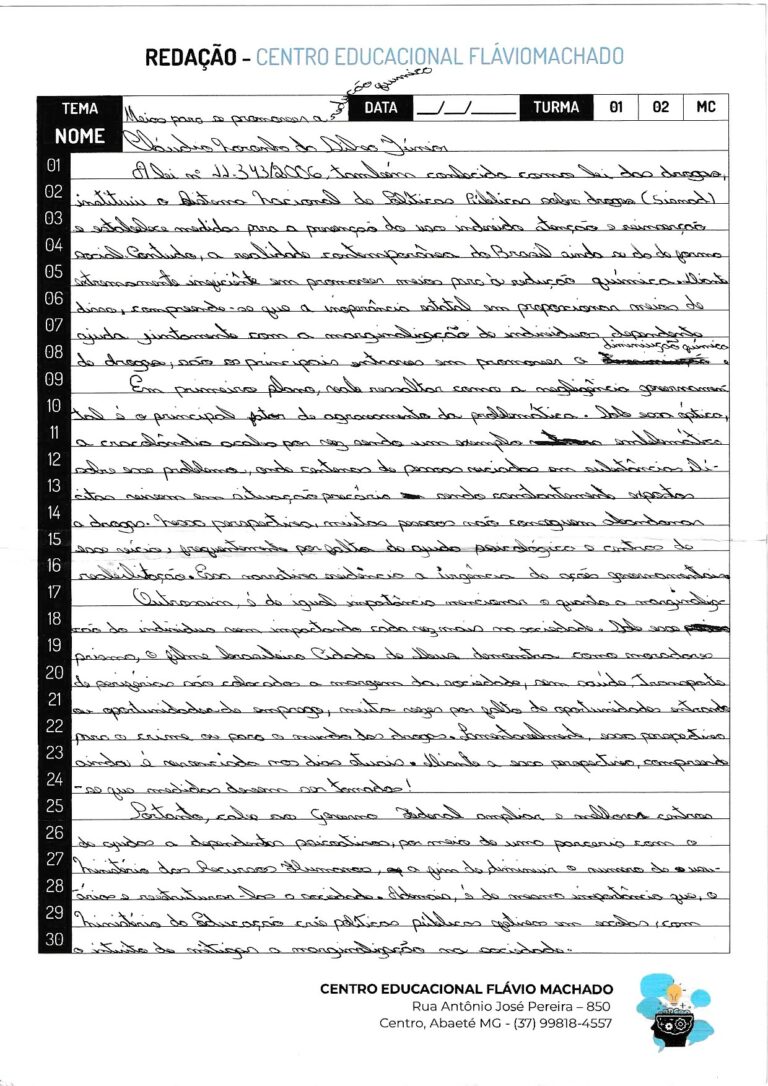 REDAÇÃO - CENTRO EDUCACIONAL FLÁVIOMACHADO
TEMA Meios para se promover a redução química DATA __/__/____ TURMA 01 02 MC
NOME Cláudio da Silva Júnior
01 A lei nº 11.343/2006, também conhecida como lei das drogas,
02 instituiu o Sistema Nacional de Políticas Públicas sobre drogas (Sisnad)
03 e estabelece medidas para a prevenção do uso indevido atenção e reinserção
04 social. Contudo, a realidade contemporânea do Brasil ainda se da de forma
05 extremamente ineficiente em promover meios para à redução química. Diante
06 disso, compreende-se que a inoperância estatal em proporcionar meios de
07 ajuda juntamente com a marginalização de indivíduos dependente
08 de drogas, são os principais entraves em promover a diminuição química
09 Em primeiro plano, vale ressaltar como a negligência governamen-
10 tal é o principal fator de agravamento da problemática. Sob essa óptica,
11 a cracolândia acaba por vez sendo um exemplo emblemático
12 sobre esse problema, onde centenas de pessoas viciadas em substâncias ilí-
13 citas vivem em situação precária sendo constantemente expostas
14 a drogas. Nessa perspectiva, muitas pessoas não conseguem abandonar
15 esse vício, frequentemente por falta de ajuda psicológica e centros de
16 reabilitação. Essa narrativa evidência a urgência de ações governamentais
17 Outrossim, é de igual importância mencionar o quanto a marginaliza-
18 ção do indivíduo vem impactando cada vez mais na sociedade. Sob esse
19 prisma, o filme brasileiro Cidade de Deus demonstra como moradores
20 de periferias são colocados a margem da sociedade, sem saúde, transporte
21 ou oportunidades de emprego, muita vezes por falta de oportunidades entrando
22 para o crime ou para o mundo das drogas. Lamentavelmente, essa perspectiva
23 ainda é vivenciada nos dias atuais. Diante a essa perspectiva, compreende
24 -se que medidas devem ser tomadas!
25 Portanto, cabe ao Governo Federal ampliar e melhorar centros
26 de ajudas a dependentes psicoativos, por meio de uma parceria com o
27 Ministério dos Recursos Humanos, a fim de diminuir o numero de usu-
28 ários e reestruturar-los a sociedade. Ademais, é de mesma importância que, o
29 Ministério da Educação crie políticas públicas efetivas em escolas, com
30 o intuito de mitigar a marginalização na sociedade.
CENTRO EDUCACIONAL FLÁVIO MACHADO
Rua Antônio José Pereira – 850
Centro, Abaeté MG - (37) 99818-4557